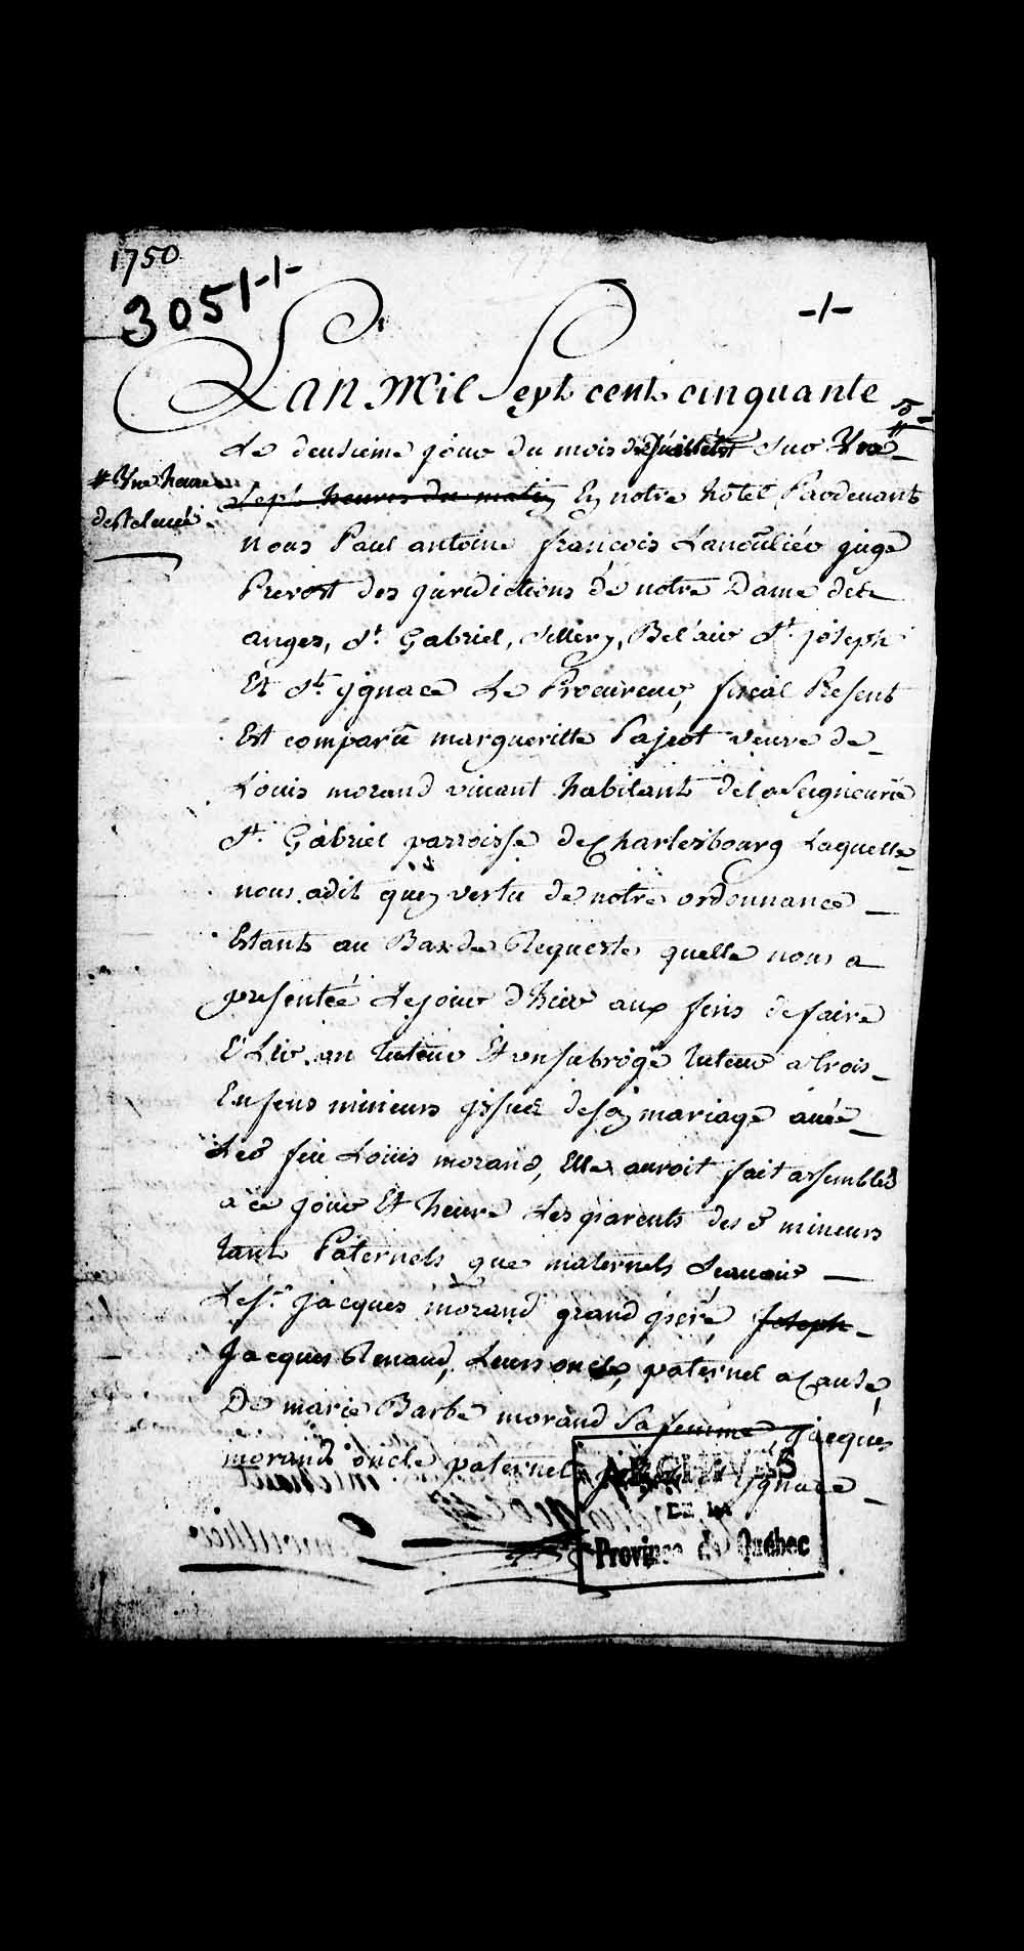 1750
3051-/-
-/-
Lan Mil Sept cent cinquante
Le deusieme jour du mois de Juillet sur Une
# Une heure
de relevée
Sept heures du matin En notre hôtel Pardevant
nous Paul antoine francois Lanoulier juge
Prevost des juridictions de notre Dame des
anges, St. Gabriel, Sillery, Bel'air St. joseph
Et St. ygnace Le Procureur fiscal Present
Est comparüe margueritte Pajeot veuve de
Loüis morand vivant habitant de la Seigneurie
St. Gabriel parroisse de Charlesbourg Laquelle
nous a dit quen vertu de notre ordonnance
Estant au Bas de Requeste quelle nous a
presentée Le jour d'hier aux fins de faire
ELir un tuteur Et un subrogé tuteur a trois
Enfens mineurs issues de son mariage avec
Led. feu Loüis morand, Elle auroit fait assembler
a ce jour Et heure Les parents desd. mineurs
tant Paternels que maternels Scavoir
Le Sr. jacques morand grand pere Joseph
Jacques Renaud, Leurs oncle, paternel a Cause
De marie Barbe morand Sa femme, jacques
morand oncle paternel ygnace
ARCHIVES
DE LA
Province de Québec